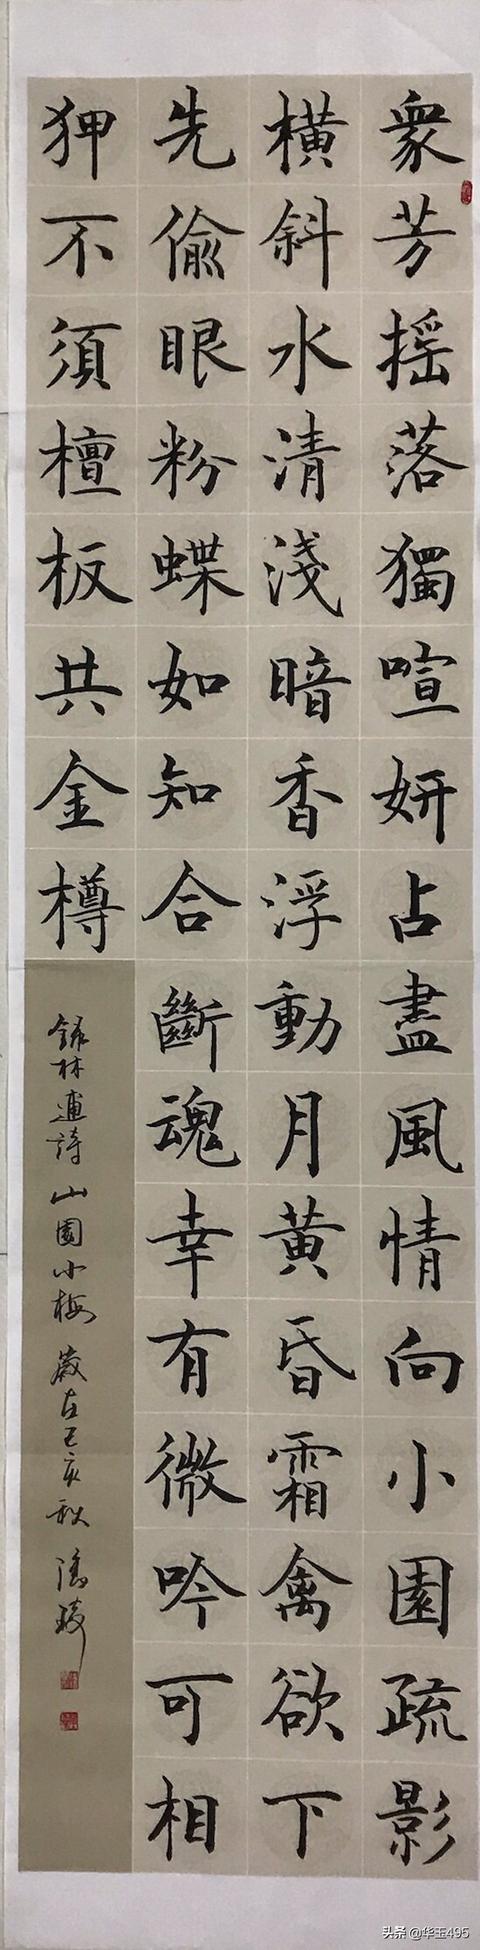 衆芳摇落獨喧妍占盡風情向小園疏影
横斜水清淺暗香浮動月黄昏霜禽欲下
先偷眼粉蝶如知合斷魂幸有微吟可相
狎不須檀板共金樽
録林逋詩山園小梅歲在己亥秋
头条 @华玉495